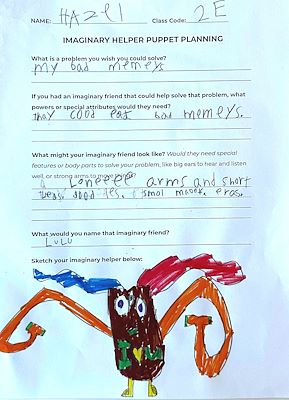 NAME: HAZel Class Code: 2E
IMAGINARY HELPER PUPPET PLANNING
What is a problem you wish you could solve?
my bad memeys
If you had an imaginary friend that could help solve that problem, what
powers or special attributes would they need?
thay cood eat bad memeys.
What might your imaginary friend look like? Would they need special
features or body parts to solve your problem, like big ears to hear and listen
well, or strong arms to move
Loneeee arms and short
smol
What would you name that imaginary friend?
LuLu
Sketch your imaginary helper below: